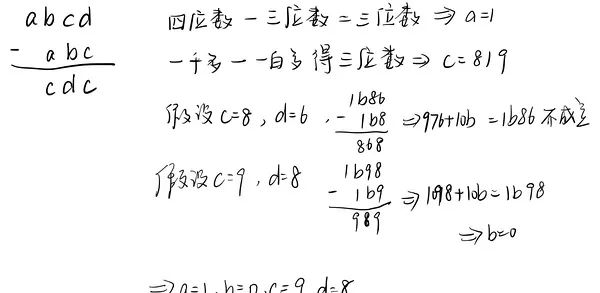 abcd
- abc
cdc
四位数 - 三位数 = 三位数 ⇒ a=1
一千多 - 一百多 得三位数 ⇒ c=819
假设 c=8, d=6, 1b86 - 1b8 868 ⇒ 976+10b = 1b86 不成立
假设 c=9, d=8 1b98 - 1b9 989 ⇒ 1098+10b = 1b98
⇒ b=0
⇒ a=1, b=0, c=9, d=8